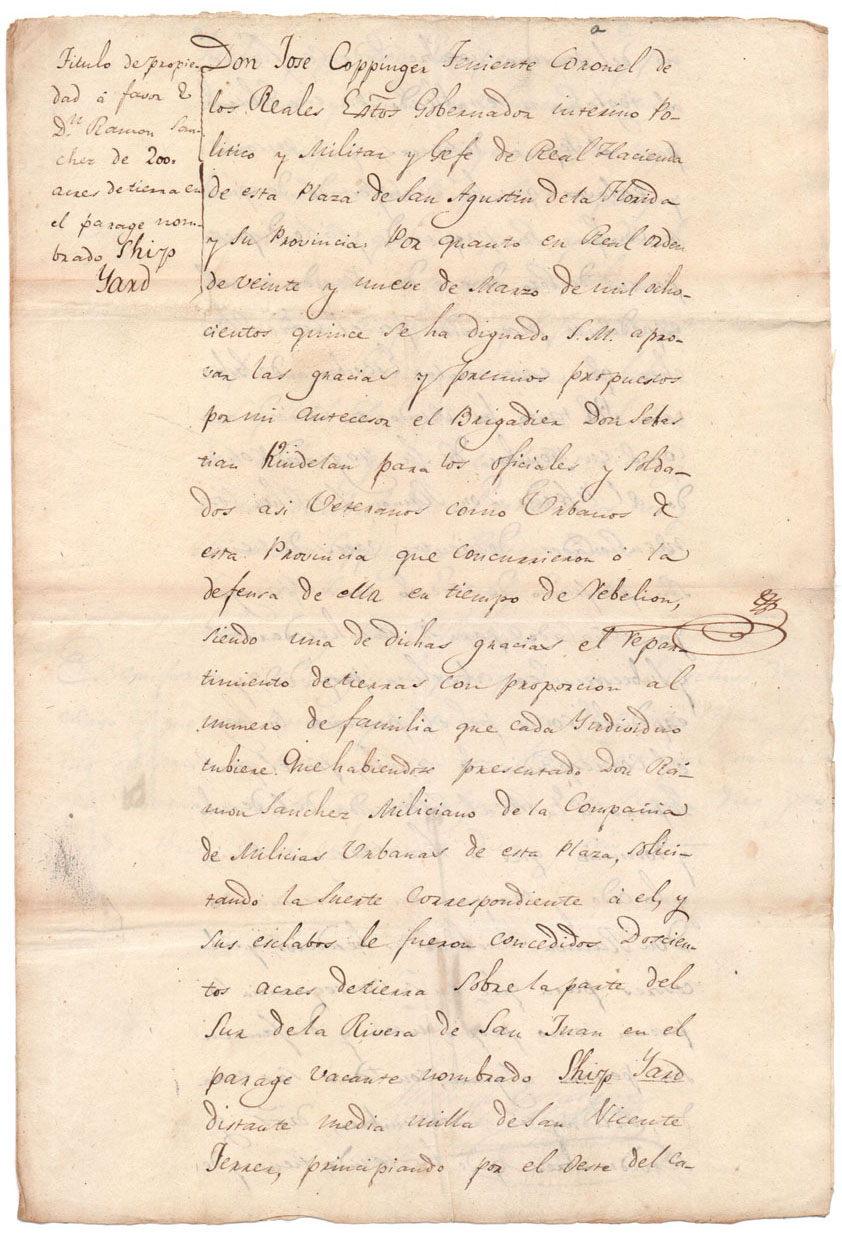 Titulo de propie-
dad á favor de
Dn. Ramon San-
chez de 200.
acres de tierra en
el parage nom-
brado Ship
Yard
Don Jose Coppinger Teniente Coronel de
los Reales Extos Gobernador interino Po-
litico y Militar y Gefe de Real Hacienda
de esta Plaza de San Agustin de la Florida
y su Provincia. Por quanto en Real orden
de veinte y nueve de Marzo de mil ocho-
cientos quince se ha dignado S. M. apro-
var las gracias y premios propuestos
por mi antecesor el Brigadier Don Sebas
tian Kindelan para los oficiales y Solda-
dos asi Veteranos como Urbanos de
esta Provincia que concurrieron á la
defensa de ella en tiempo de rebelion,
siendo una de dichas gracias el repar-
timiento de tierras con proporcion al
numero de familia que cada Yndividuo
tubiere. Que habiendose presentado Don Ra-
mon Sanchez Miliciano de la Compañia
de Milicias Urbanas de esta Plaza, solici-
tando la suerte correspondiente á el, y
sus esclabos le fueron concedidos Doscien-
tos acres de tierra sobre la parte del
Sur de la Rivera de San Juan en el
parage vacante nombrado Ship Yard
distante media milla de San Vicente
Ferrer, principiando por el Oeste del Ca-